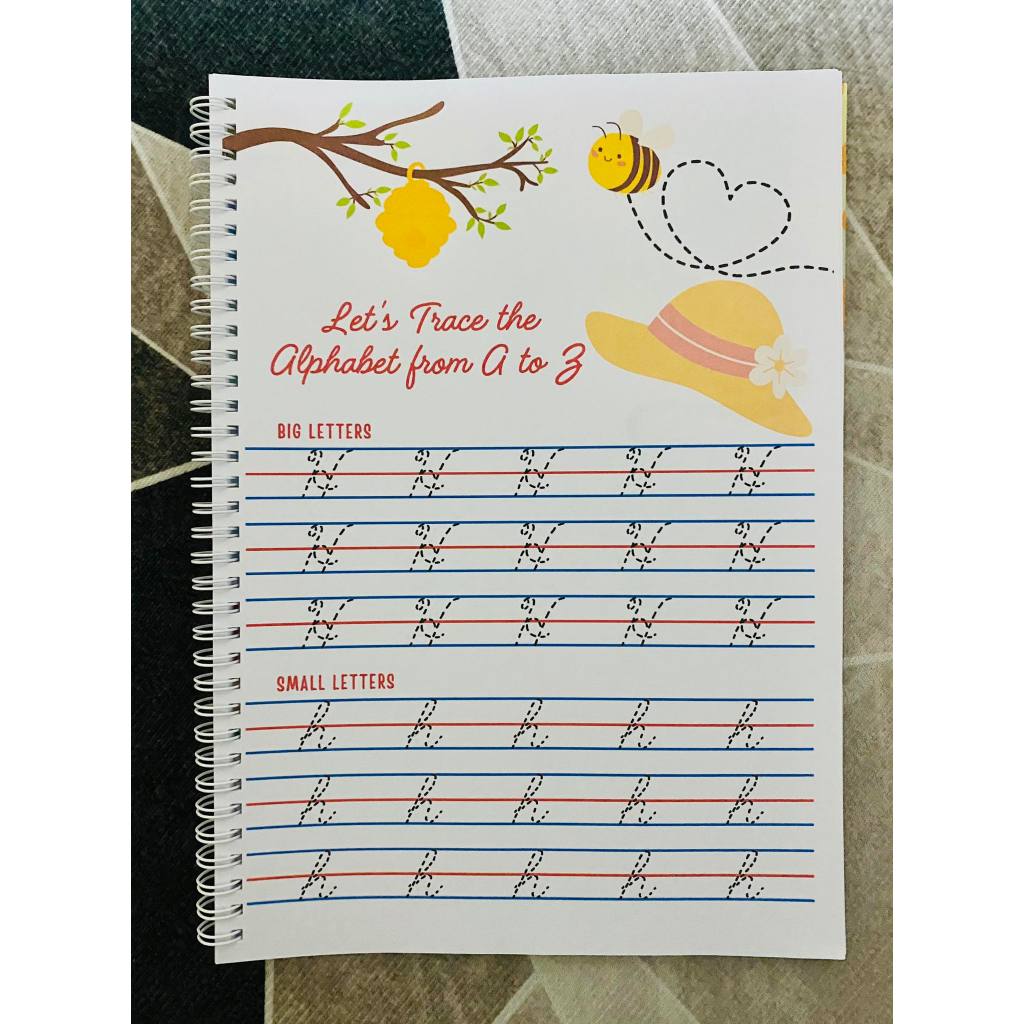 Let's Trace the
Alphabet from A to Z
BIG LETTERS
H H H H H
H H H H H
H H H H H
SMALL LETTERS
h h h h h
h h h h h
h h h h h